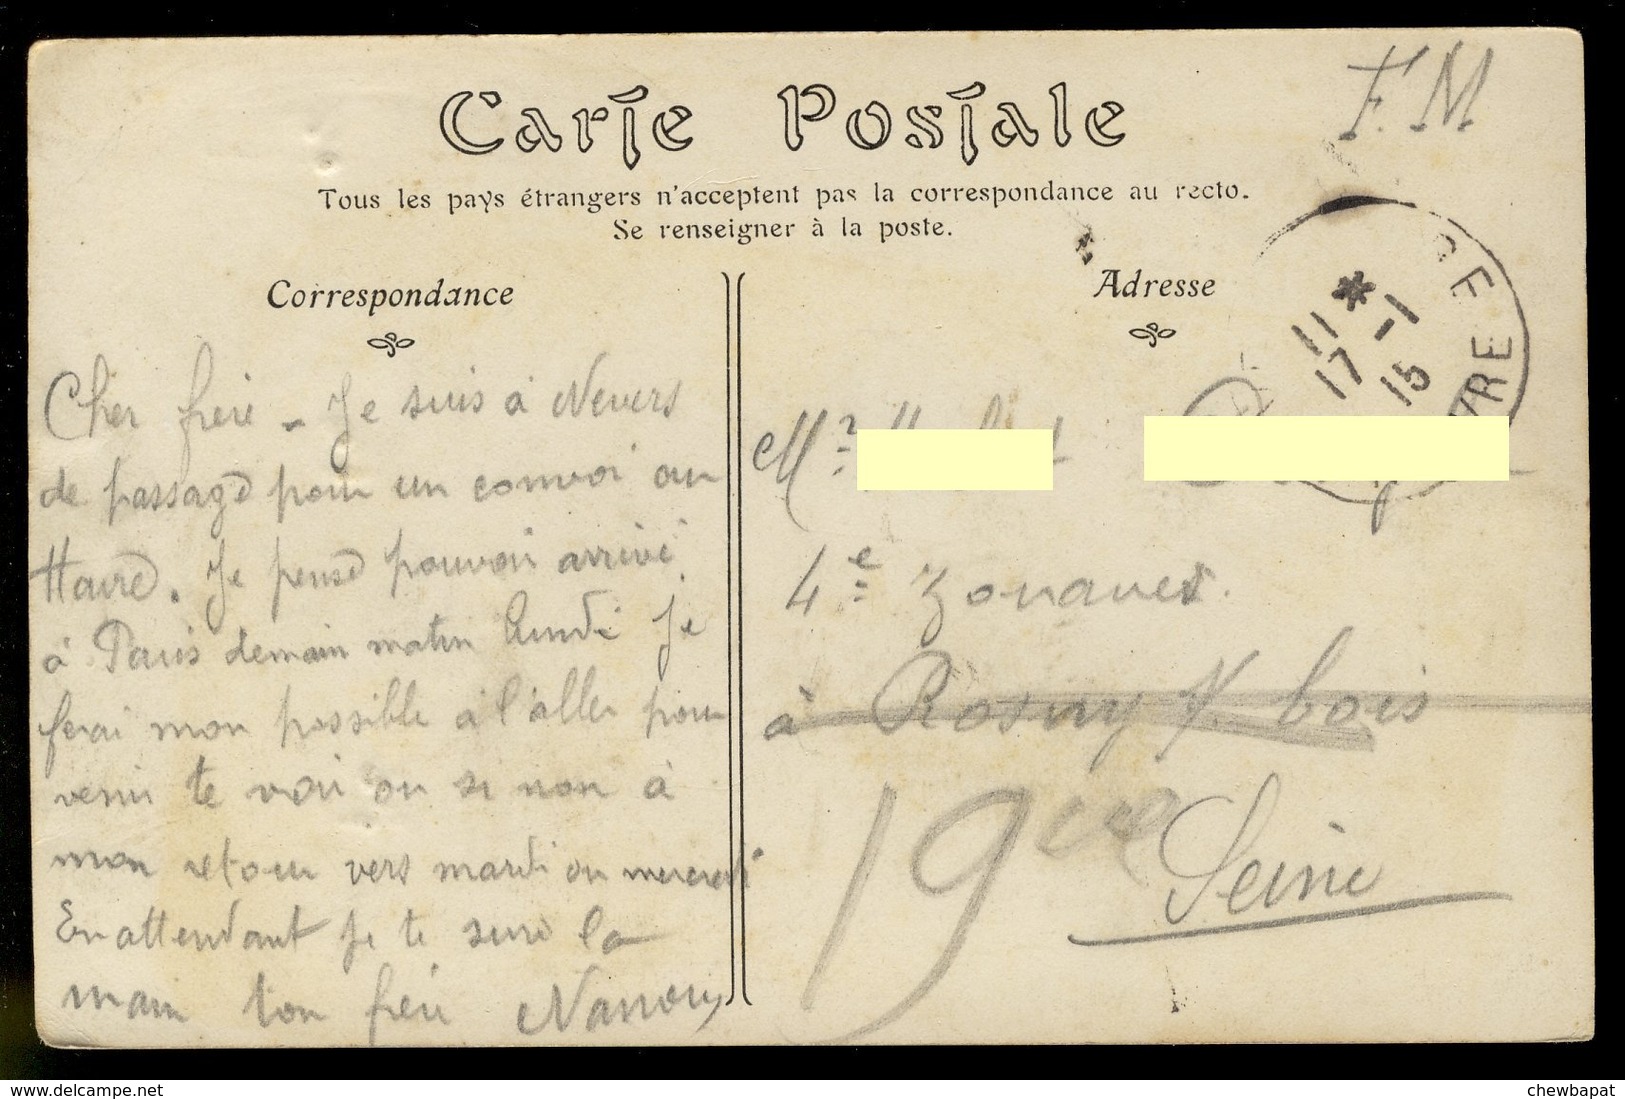 F. M
Carte Postale
Tous les pays étrangers n'acceptent pas la correspondance au recto.
Se renseigner à la poste.
Correspondance
Cher frère - Je suis à Nevers
de passage pour un convoi au
Havre. Je pense pouvoir arrivé
à Paris demain matin Lundi Je
ferai mon possible à l'aller pour
venir te voir ou si non à
mon retour vers mardi ou mercredi
En attendant Je te serre la
main ton frère
Adresse
11 *
17 -1
15
Mr
4e Zouaves.
à Rosny s/. bois
19
Seine
www.delcampe.net
chewbapat